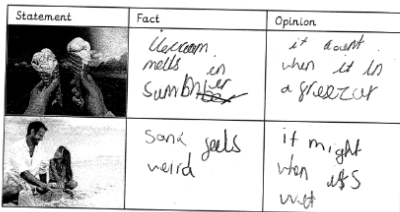 Statement Fact Opinion
icecream
melts in
Sumbter
it doent
when it in
a freezer
Sand feels
weird
if might
when it's
wet